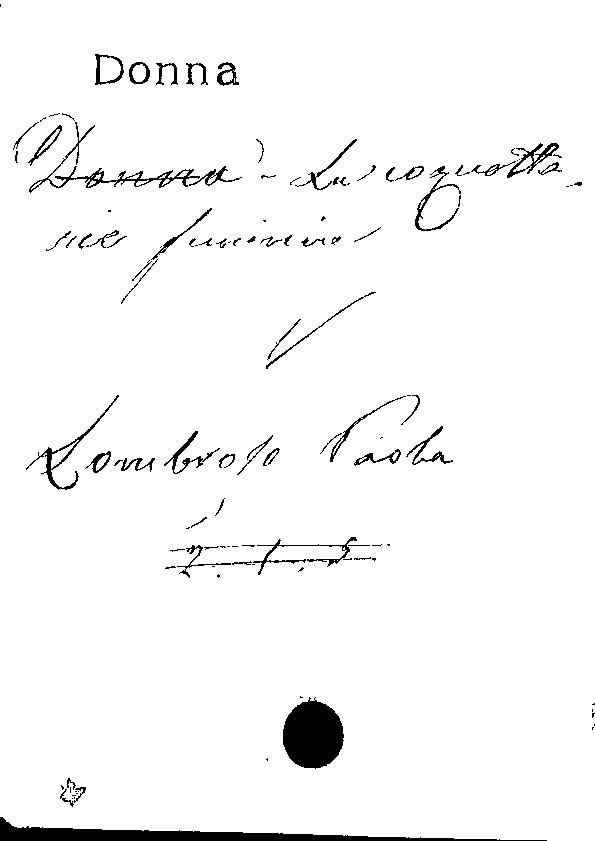 Donna
(Donna) - La coquette
rie feminine
V
Lombroso Paola
7. 1. 5